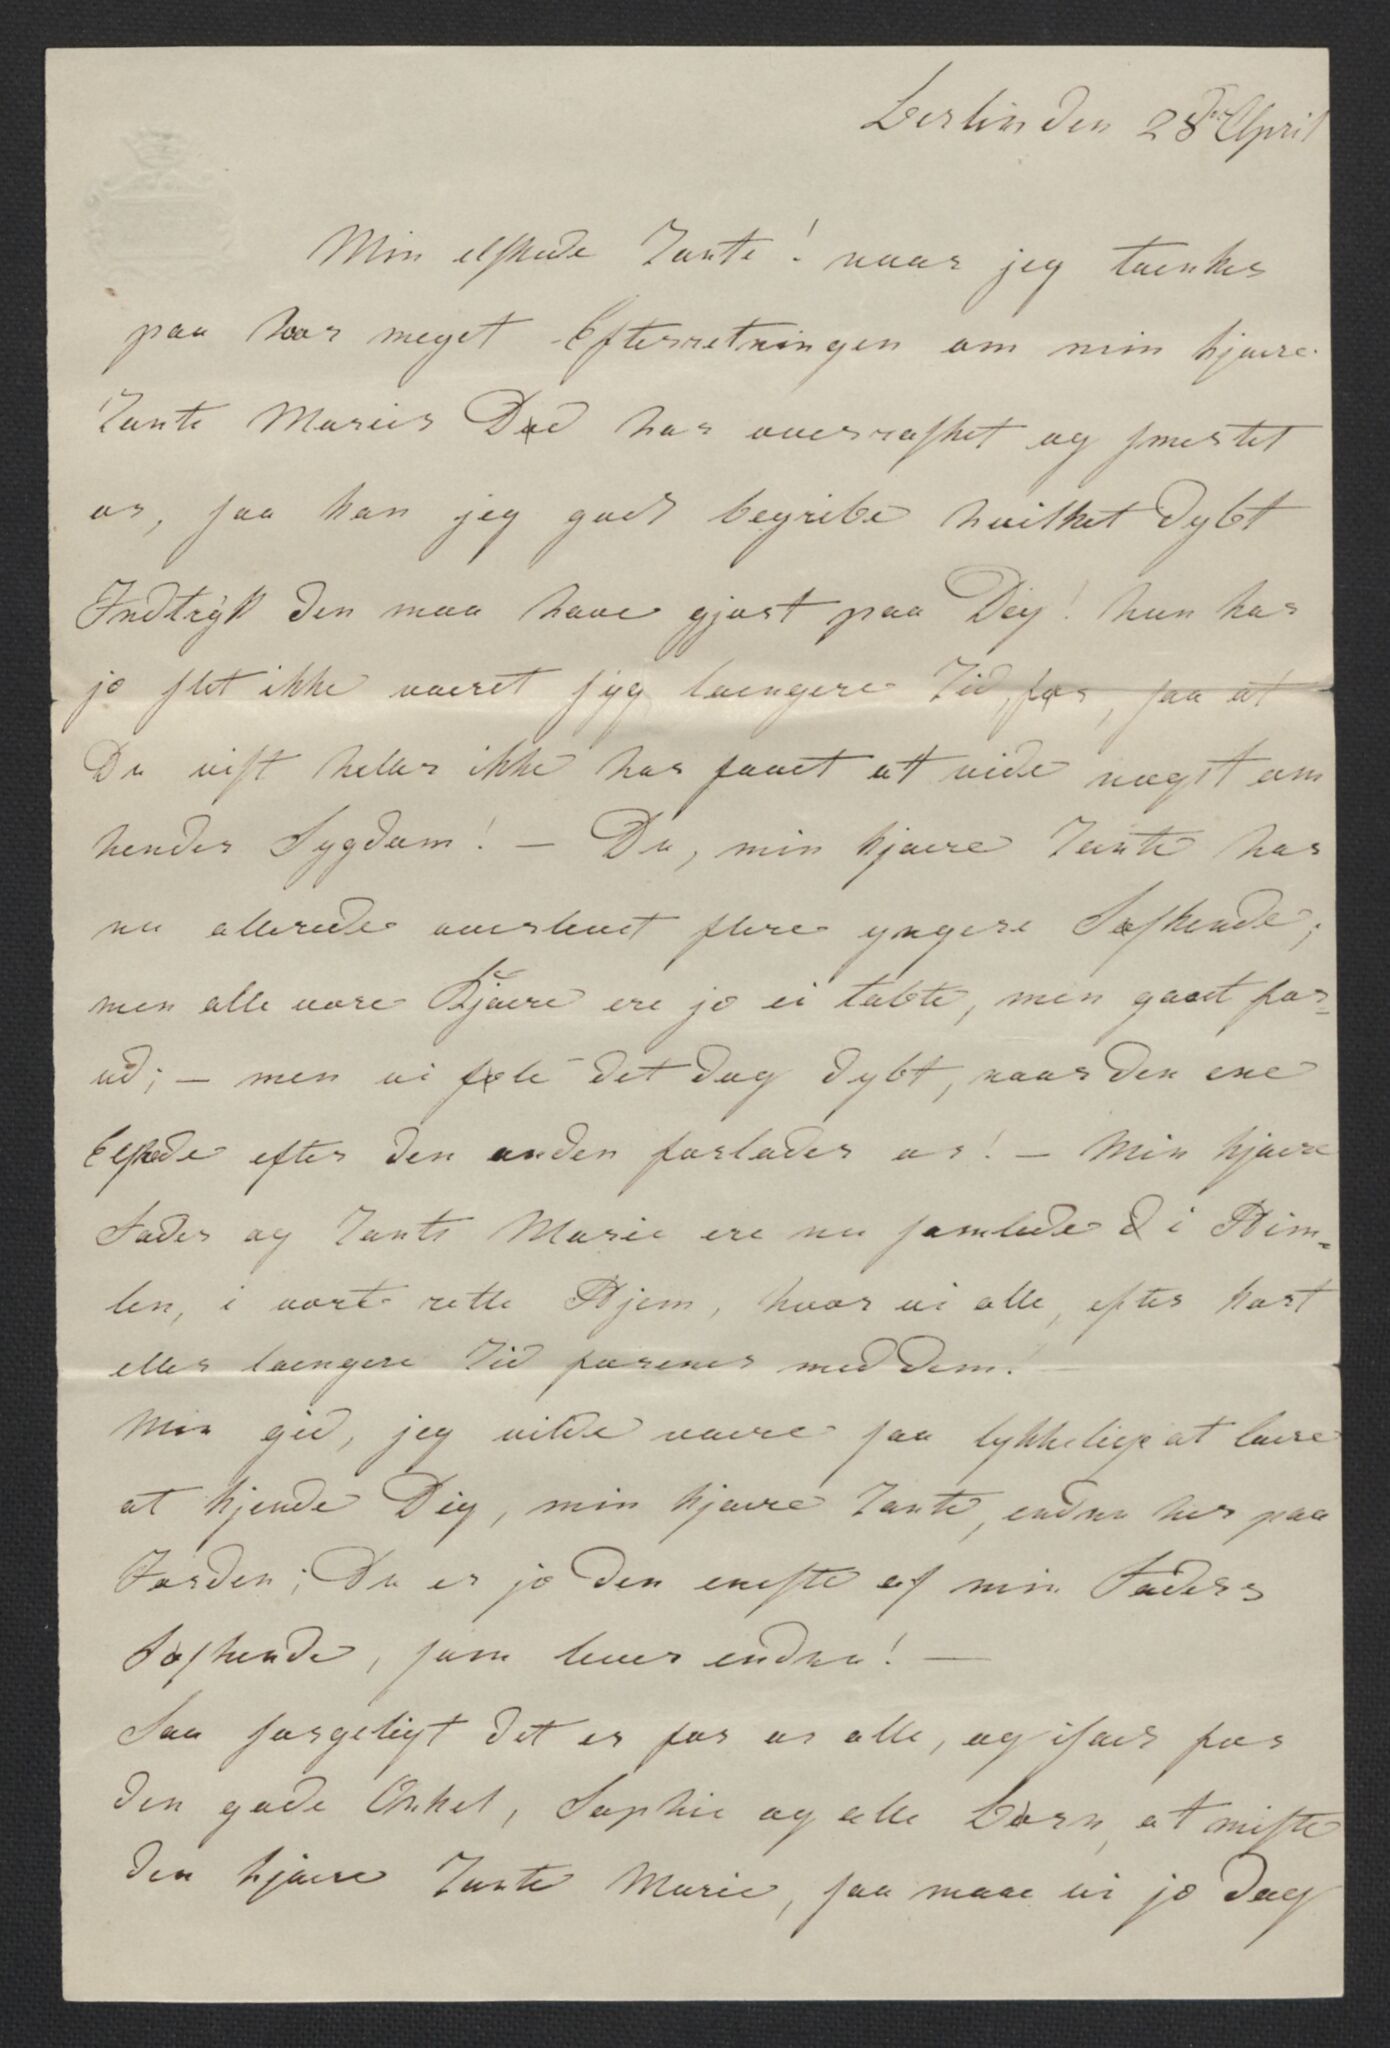 Berlin den 28de April
Min elskede Tante! naar jeg tænker
paa hvor meget Efterretningen om min kjære
Tante Maries Død har overrasket og smertet
os, saa kan jeg godt begribe hvilket dybt
Indtryk den maa have gjort paa Dig! hun har
jo slet ikke været syg længere Tid, før, saa at
Du vist heller ikke har faaet at vide noget om
hendes Sygdom! — Du, min kjære Tante har
nu allerede overlevet flere yngere Søskende;
men alle vore Kjære ere jo ei tabte, men gaaet for-
ud; — men vi føle det dog dybt, naar den ene
Elskede efter den anden forlader os! — Min kjære
Fader og Tante Marie ere nu samlede i Him-
len, i vort rette Hjem, hvor vi alle, efter kort
eller længere Tid forenes med dem!
Men gid, jeg vilde være saa lykkelig at lære
at kjende Dig, min kjære Tante, endnu her paa
Jorden; Du er jo den eneste af min Faders
Søskende, som lever endnu! —
Saa sørgeligt det er for os alle, og især for
den gode Onkel, Sophie og alle Børn, at miste
den kjære Tante Marie, saa maae vi jo dog